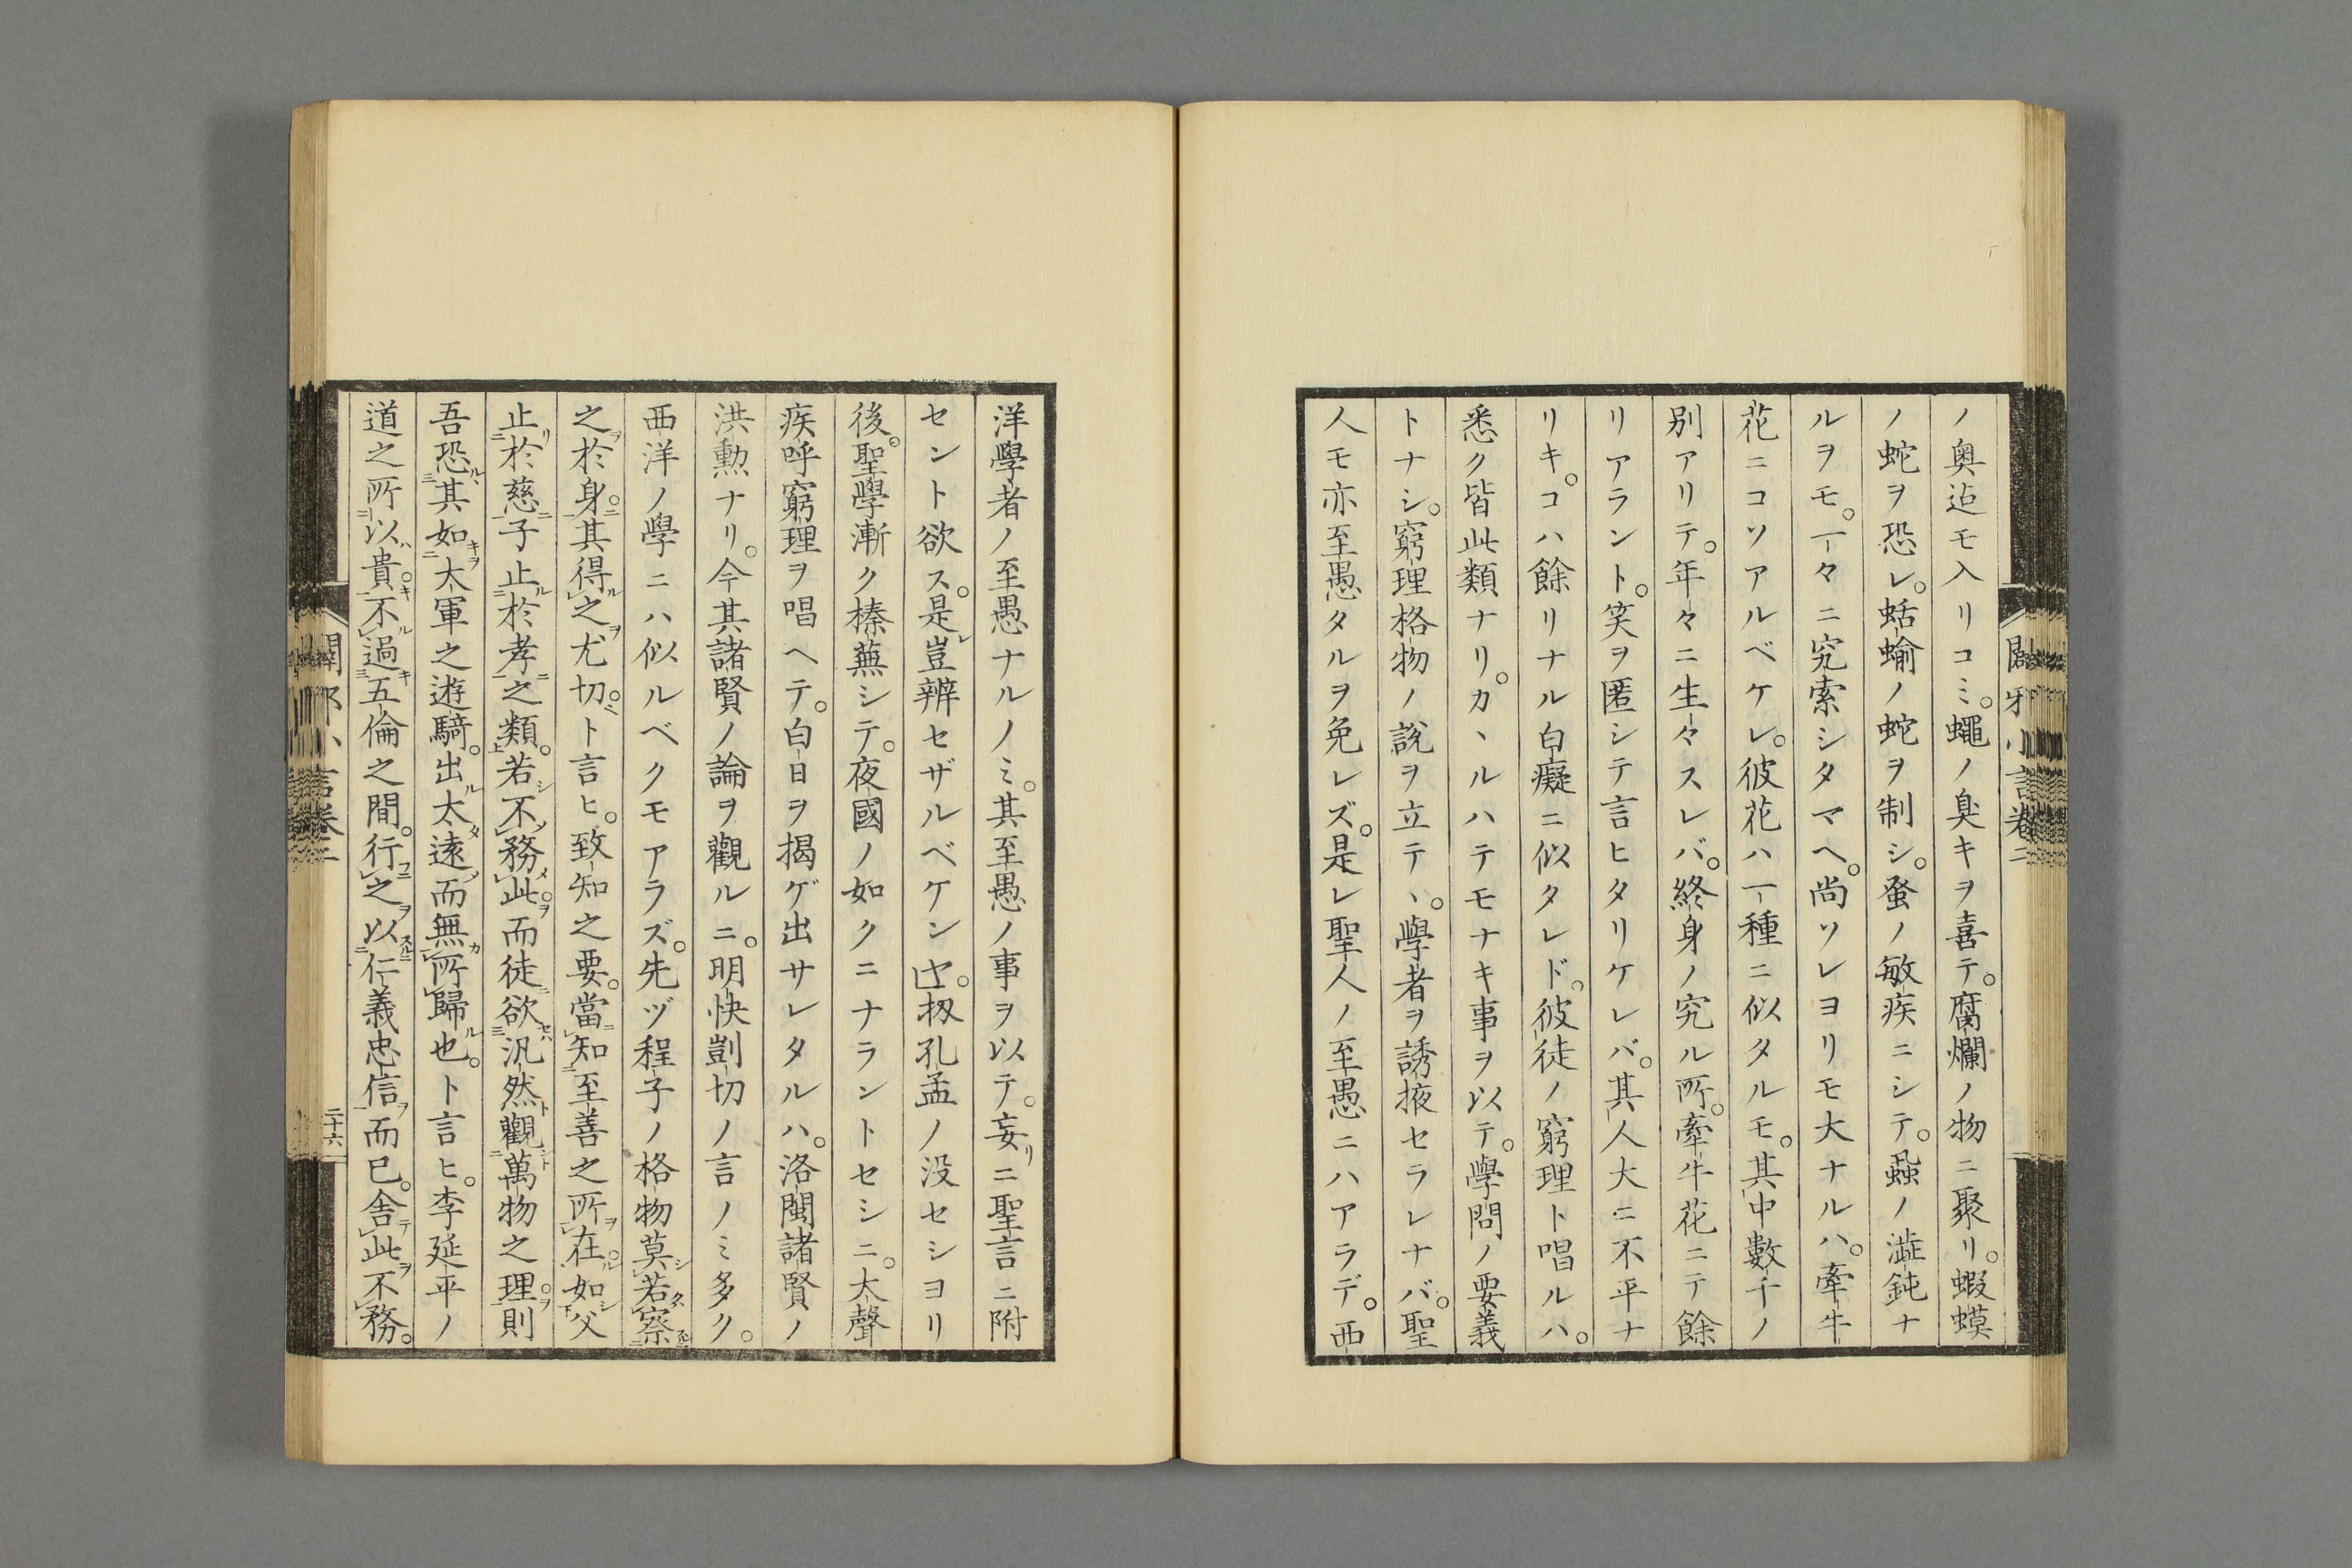 ノ奧迠モ入リコミ。蠅ノ臭キヲ喜テ。腐爛ノ物ニ聚リ。蝦蟆
ノ蛇ヲ恐レ。蛞蝓ノ蛇ヲ制シ。蚤ノ敏疾ニシテ。蝨ノ澁鈍ナ
ルヲモ。一々ニ究索シタマヘ。尚ソレヨリモ大ナルハ。牽牛
花ニコソアルベケレ。彼花ハ一種ニ似タルモ。其中數千ノ
別アリテ。年々ニ生々スレバ。終身ノ究ル所。牽牛花ニテ餘
リアラント。笑ヲ匿シテ言ヒタリケレバ。其人大ニ不平ナ
リキ。コハ餘リナル白癡ニ似タレド。彼徒ノ窮理ト唱ルハ。
悉ク皆此類ナリ。カヽルハテモナキ事ヲ以テ。學問ノ要義
トナシ。窮理格物ノ說ヲ立テヽ。學者ヲ誘掖セラレナバ。聖
人モ亦至愚タルヲ免レズ。是レ聖人ノ至愚ニハアラデ。西
闢邪小言卷二
洋學者ノ至愚ナルノミ。其至愚ノ事ヲ以テ。妄リニ聖言ニ附
セント欲ス。是レ豈辨セザルベケンヤ。扨孔孟ノ没セシヨリ
後。聖學漸ク榛蕪シテ。夜國ノ如クニナラントセシニ。大聲
疾呼窮理ヲ唱ヘテ。白日ヲ揭ゲ出サレタルハ。洛閩諸賢ノ
洪勲ナリ。今其諸賢ノ論ヲ觀ルニ。明快剴切ノ言ノミ多ク。
西洋ノ學ニハ似ルベクモアラズ。先ヅ程子ノ格物莫若察
之於身。其得之尤切。ト言ヒ。致知之要。當知至善之所在。如父
止於慈子止於孝之類。若不務此。而徒欲汎然觀萬物之理。則
吾恐其如大軍之遊騎。出太遠而無所歸也。ト言ヒ。李延平ノ
道之所以貴。不過五倫之間。行之以仁義忠信而已。舍此不務。
闢邪小言卷二
二十六